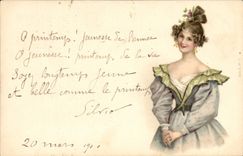 O printemps! jeunesse de l'année
O jeunesse! printemps de la vie
Soyez longtemps jeune
et belle comme le printemps
Silvio
20 mars 190